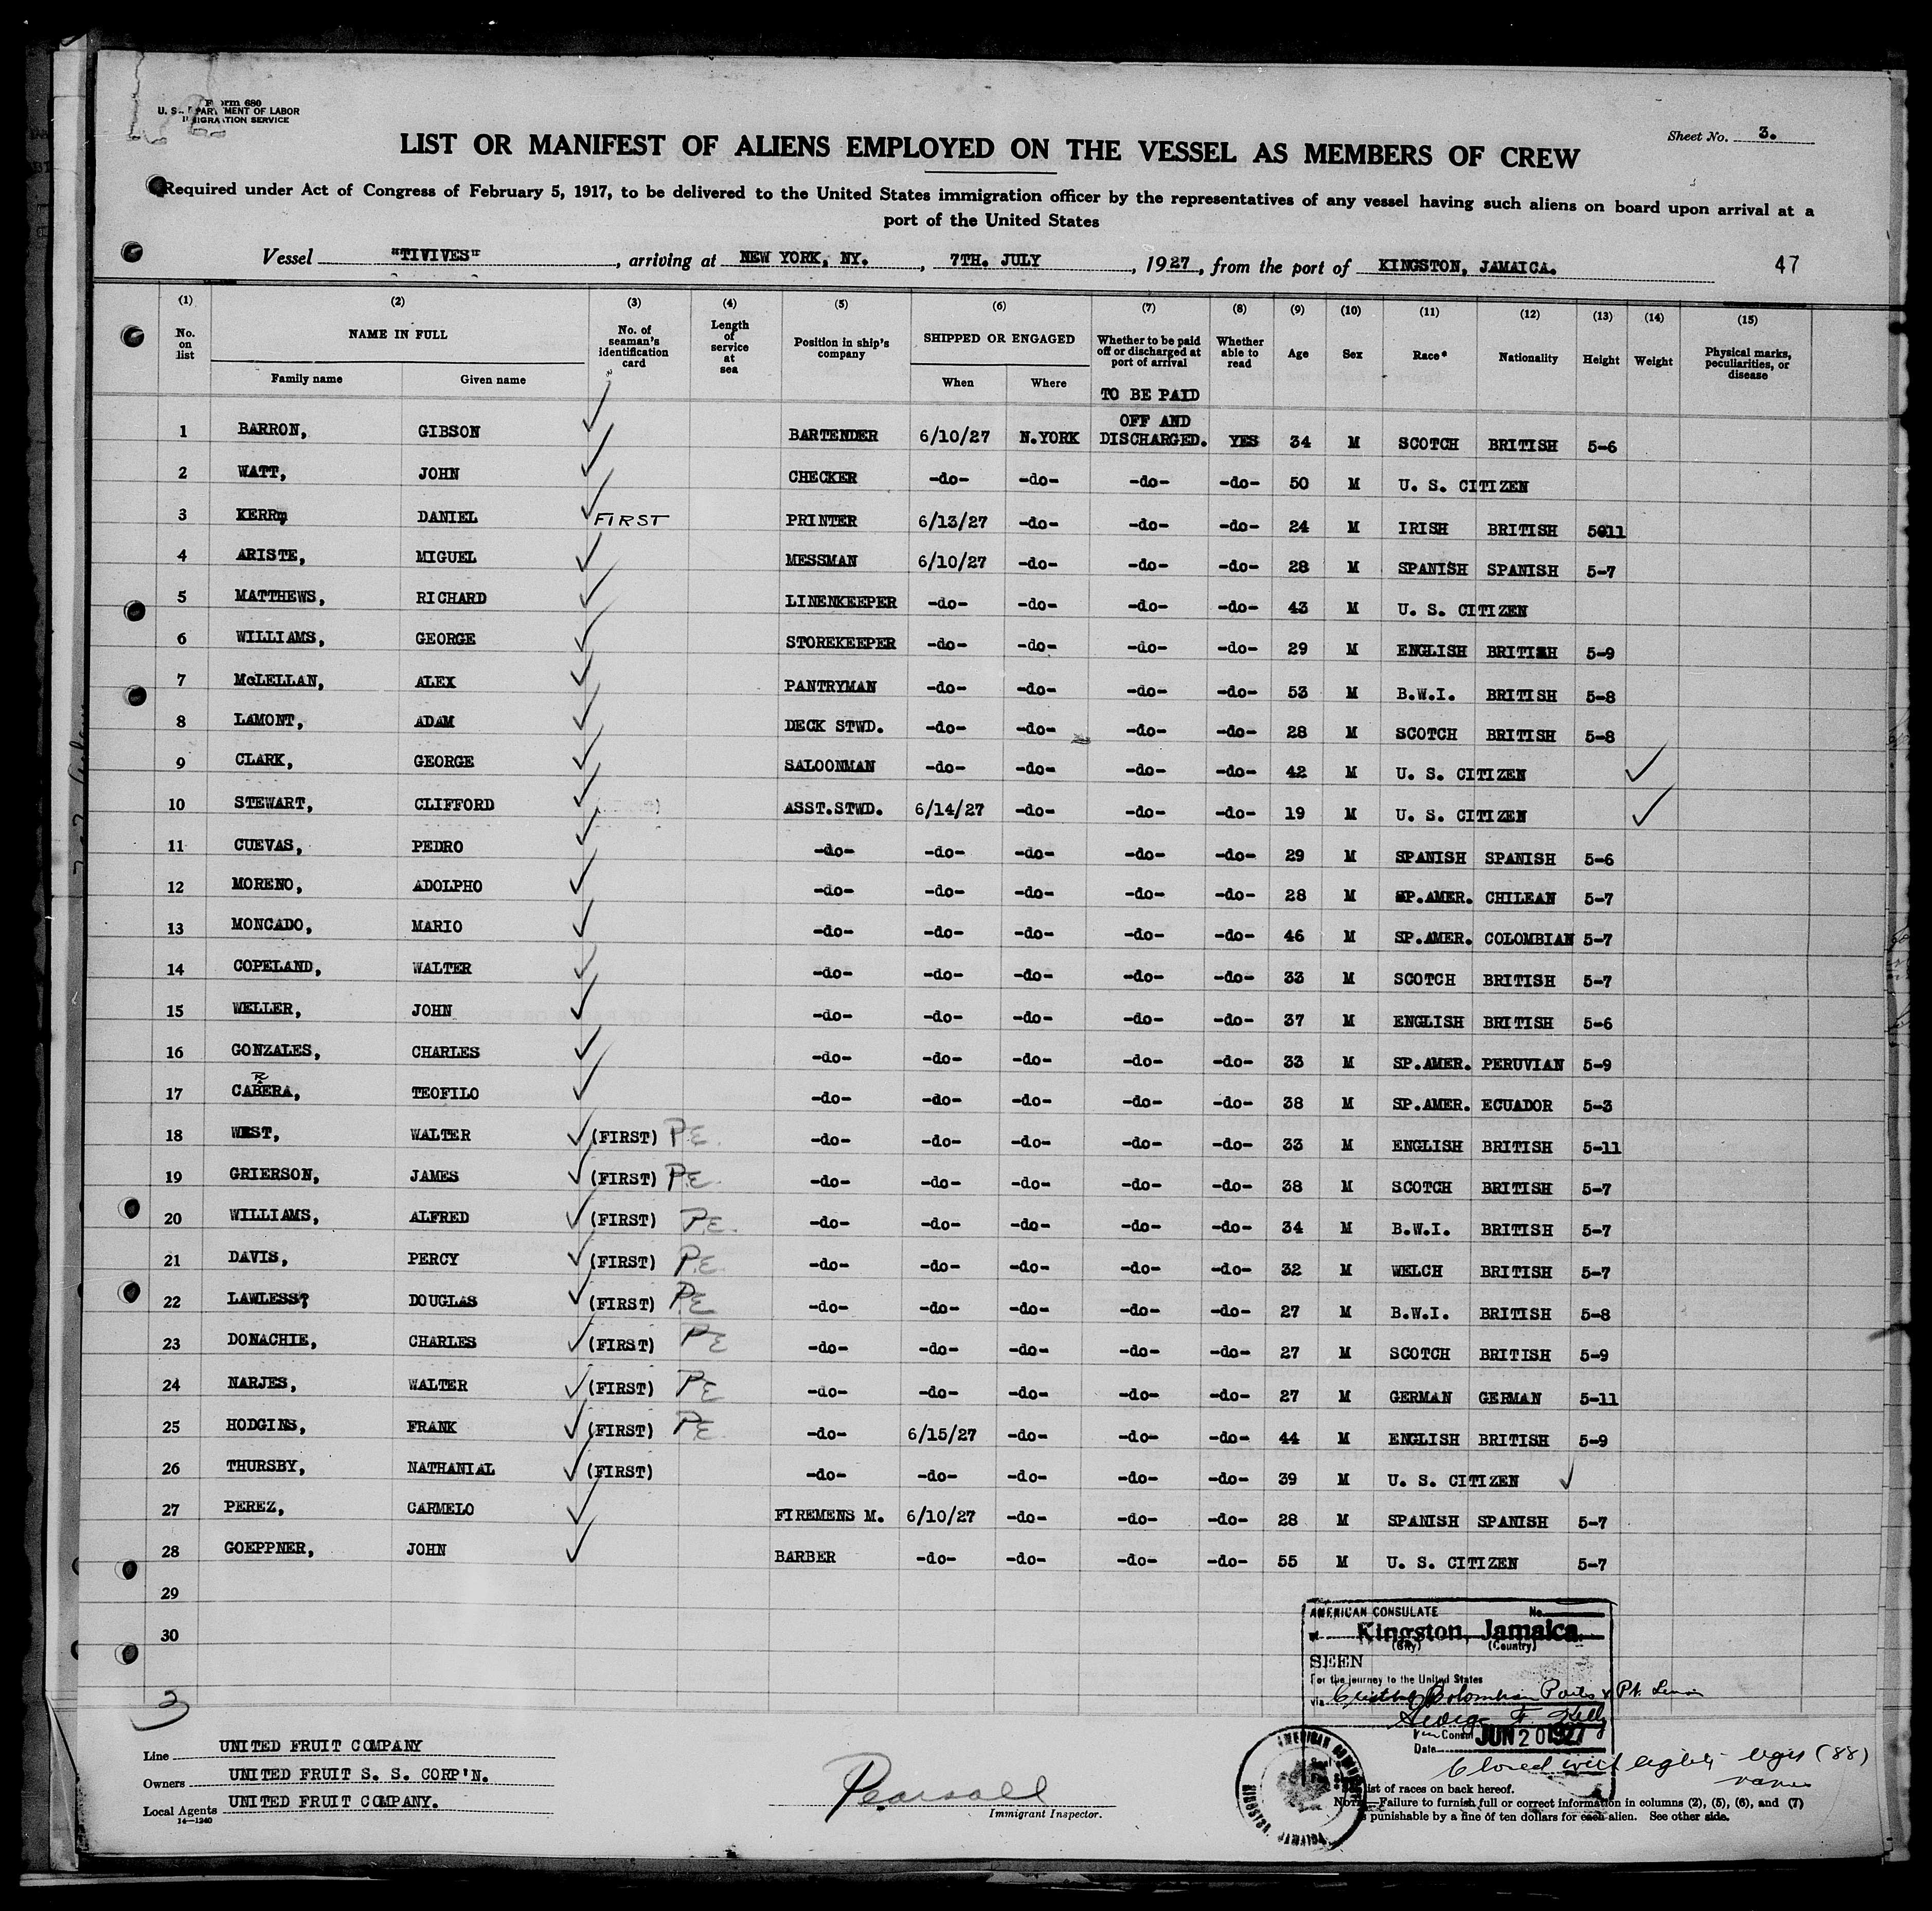 Form 680
U. S. DEPARTMENT OF LABOR
IMMIGRATION SERVICE
Sheet No. 3.
LIST OR MANIFEST OF ALIENS EMPLOYED ON THE VESSEL AS MEMBERS OF CREW
Required under Act of Congress of February 5, 1917, to be delivered to the United States immigration officer by the representatives of any vessel having such aliens on board upon arrival at a
port of the United States
Vessel "TIVIVES", arriving at NEW YORK, NY., 7TH. JULY, 1927, from the port of KINGSTON, JAMAICA. 47
(1) (2) (3) (4) (5) (6) (7) (8) (9) (10) (11) (12) (13) (14) (15)
No. on list NAME IN FULL Family name Given name No. of seaman's identification card Length of service at sea Position in ship's company SHIPPED OR ENGAGED When Where Whether to be paid off or discharged at port of arrival Whether able to read Age Sex Race* Nationality Height Weight Physical marks, peculiarities, or disease
TO BE PAID
OFF AND
1 BARRON, GIBSON BARTENDER 6/10/27 N.YORK DISCHARGED. YES 34 M SCOTCH BRITISH 5-6
2 WATT, JOHN CHECKER -do- -do- -do- -do- 50 M U. S. CITIZEN
3 KERR, DANIEL FIRST PRINTER 6/13/27 -do- -do- -do- 24 M IRISH BRITISH 5-11
4 ARISTE, MIGUEL MESSMAN 6/10/27 -do- -do- -do- 28 M SPANISH SPANISH 5-7
5 MATTHEWS, RICHARD LINENKEEPER -do- -do- -do- -do- 43 M U. S. CITIZEN
6 WILLIAMS, GEORGE STOREKEEPER -do- -do- -do- -do- 29 M ENGLISH BRITISH 5-9
7 McLELLAN, ALEX PANTRYMAN -do- -do- -do- -do- 53 M B.W.I. BRITISH 5-8
8 LAMONT, ADAM DECK STWD. -do- -do- -do- -do- 28 M SCOTCH BRITISH 5-8
9 CLARK, GEORGE SALOONMAN -do- -do- -do- -do- 42 M U. S. CITIZEN
10 STEWART, CLIFFORD ASST.STWD. 6/14/27 -do- -do- -do- 19 M U. S. CITIZEN
11 CUEVAS, PEDRO -do- -do- -do- -do- -do- 29 M SPANISH SPANISH 5-6
12 MORENO, ADOLPHO -do- -do- -do- -do- -do- 28 M SP.AMER. CHILEAN 5-7
13 MONCADO, MARIO -do- -do- -do- -do- -do- 46 M SP.AMER. COLOMBIAN 5-7
14 COPELAND, WALTER -do- -do- -do- -do- -do- 33 M SCOTCH BRITISH 5-7
15 WELLER, JOHN -do- -do- -do- -do- -do- 37 M ENGLISH BRITISH 5-6
16 GONZALES, CHARLES -do- -do- -do- -do- -do- 33 M SP.AMER. PERUVIAN 5-9
R
17 CABERA, TEOFILO -do- -do- -do- -do- -do- 38 M SP.AMER. ECUADOR 5-3
18 WEST, WALTER (FIRST) P.E. -do- -do- -do- -do- -do- 33 M ENGLISH BRITISH 5-11
19 GRIERSON, JAMES (FIRST) P.E. -do- -do- -do- -do- -do- 38 M SCOTCH BRITISH 5-7
20 WILLIAMS, ALFRED (FIRST) P.E. -do- -do- -do- -do- -do- 34 M B.W.I. BRITISH 5-7
21 DAVIS, PERCY (FIRST) P.E. -do- -do- -do- -do- -do- 32 M WELCH BRITISH 5-7
22 LAWLESS? DOUGLAS (FIRST) P.E. -do- -do- -do- -do- -do- 27 M B.W.I. BRITISH 5-8
23 DONACHIE, CHARLES (FIRST) P.E. -do- -do- -do- -do- -do- 27 M SCOTCH BRITISH 5-9
24 NARJES, WALTER (FIRST) P.E. -do- -do- -do- -do- -do- 27 M GERMAN GERMAN 5-11
25 HODGINS, FRANK (FIRST) P.E. -do- 6/15/27 -do- -do- -do- 44 M ENGLISH BRITISH 5-9
26 THURSBY, NATHANIAL (FIRST) -do- -do- -do- -do- -do- 39 M U. S. CITIZEN
27 PEREZ, CARMELO FIREMENS M. 6/10/27 -do- -do- -do- 28 M SPANISH SPANISH 5-7
28 GOEPPNER, JOHN BARBER -do- -do- -do- -do- 55 M U. S. CITIZEN 5-7
29
30
AMERICAN CONSULATE No.
at Kingston, Jamaica.
(City) (Country)
SEEN
For the journey to the United States
via Colombian Ports & Pt. Limon
George F. Kelly
Vice Consul
Date JUN 20 1927
Closed with eighty-eight (88)
names
3
Line UNITED FRUIT COMPANY
Owners UNITED FRUIT S. S. CORP'N.
Local Agents UNITED FRUIT COMPANY.
14-1240
Pearsall
Immigrant Inspector.
list of races on back hereof.
NOTE.—Failure to furnish full or correct information in columns (2), (5), (6), and (7)
is punishable by a fine of ten dollars for each alien. See other side.